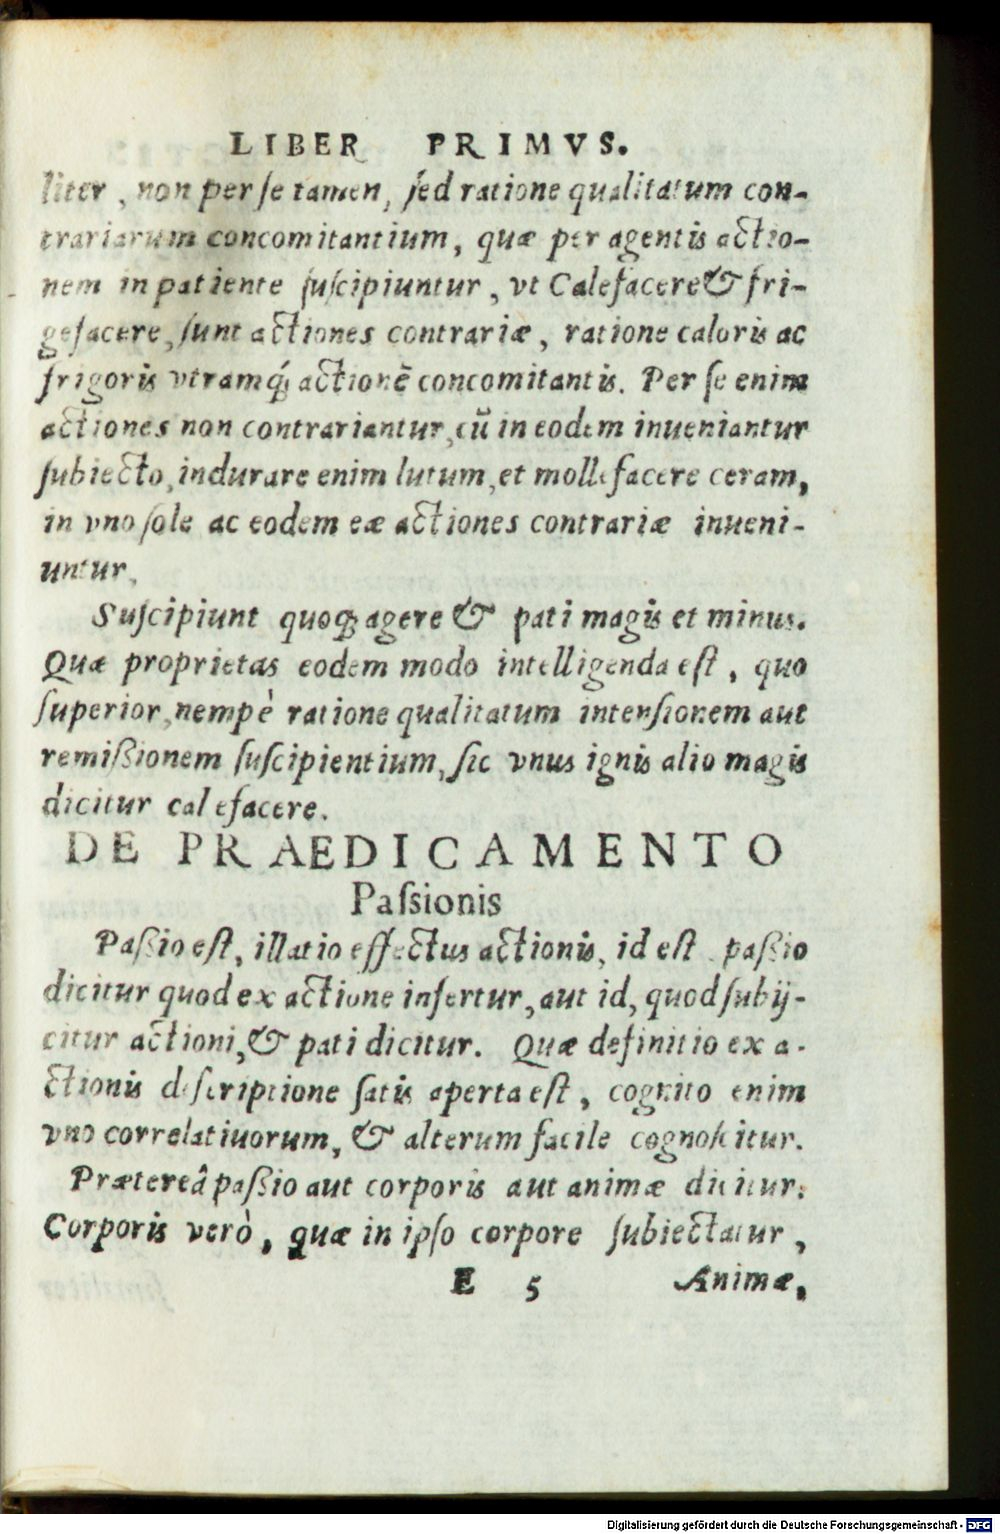 LIBER PRIMVS.
liter, non per se tamen, sed ratione qualitatum con-
trariarum concomitantium, quæ per agentis actio-
nem in patiente suscipiuntur, vt Calefacere & fri-
gefacere, sunt actiones contrariæ, ratione caloris ac
frigoris vtramq́; actionē concomitantis. Per se enim
actiones non contrariantur, cū in eodem inueniantur
subiecto, indurare enim lutum, et mollefacere ceram,
in vno sole ac eodem eæ actiones contrariæ inueni-
untur.
Suscipiunt quoq; agere & pati magis et minus.
Quæ proprietas eodem modo intelligenda est, quo
superior, nempè ratione qualitatum intensionem aut
remißionem suscipientium, sic vnus ignis alio magis
dicitur calefacere.
DE PRAEDICAMENTO
Passionis
Paßio est, illatio effectus actionis, id est paßio
dicitur quod ex actione infertur, aut id, quod subij-
citur actioni, & pati dicitur. Quæ definitio ex a-
ctionis descriptione satis aperta est, cognito enim
vno correlatiuorum, & alterum facile cognoscitur.
Prætereâ paßio aut corporis aut animæ dicitur:
Corporis verò, quæ in ipso corpore subiectatur,
E 5 Animæ,
Digitalisierung gefördert durch die Deutsche Forschungsgemeinschaft - DFG